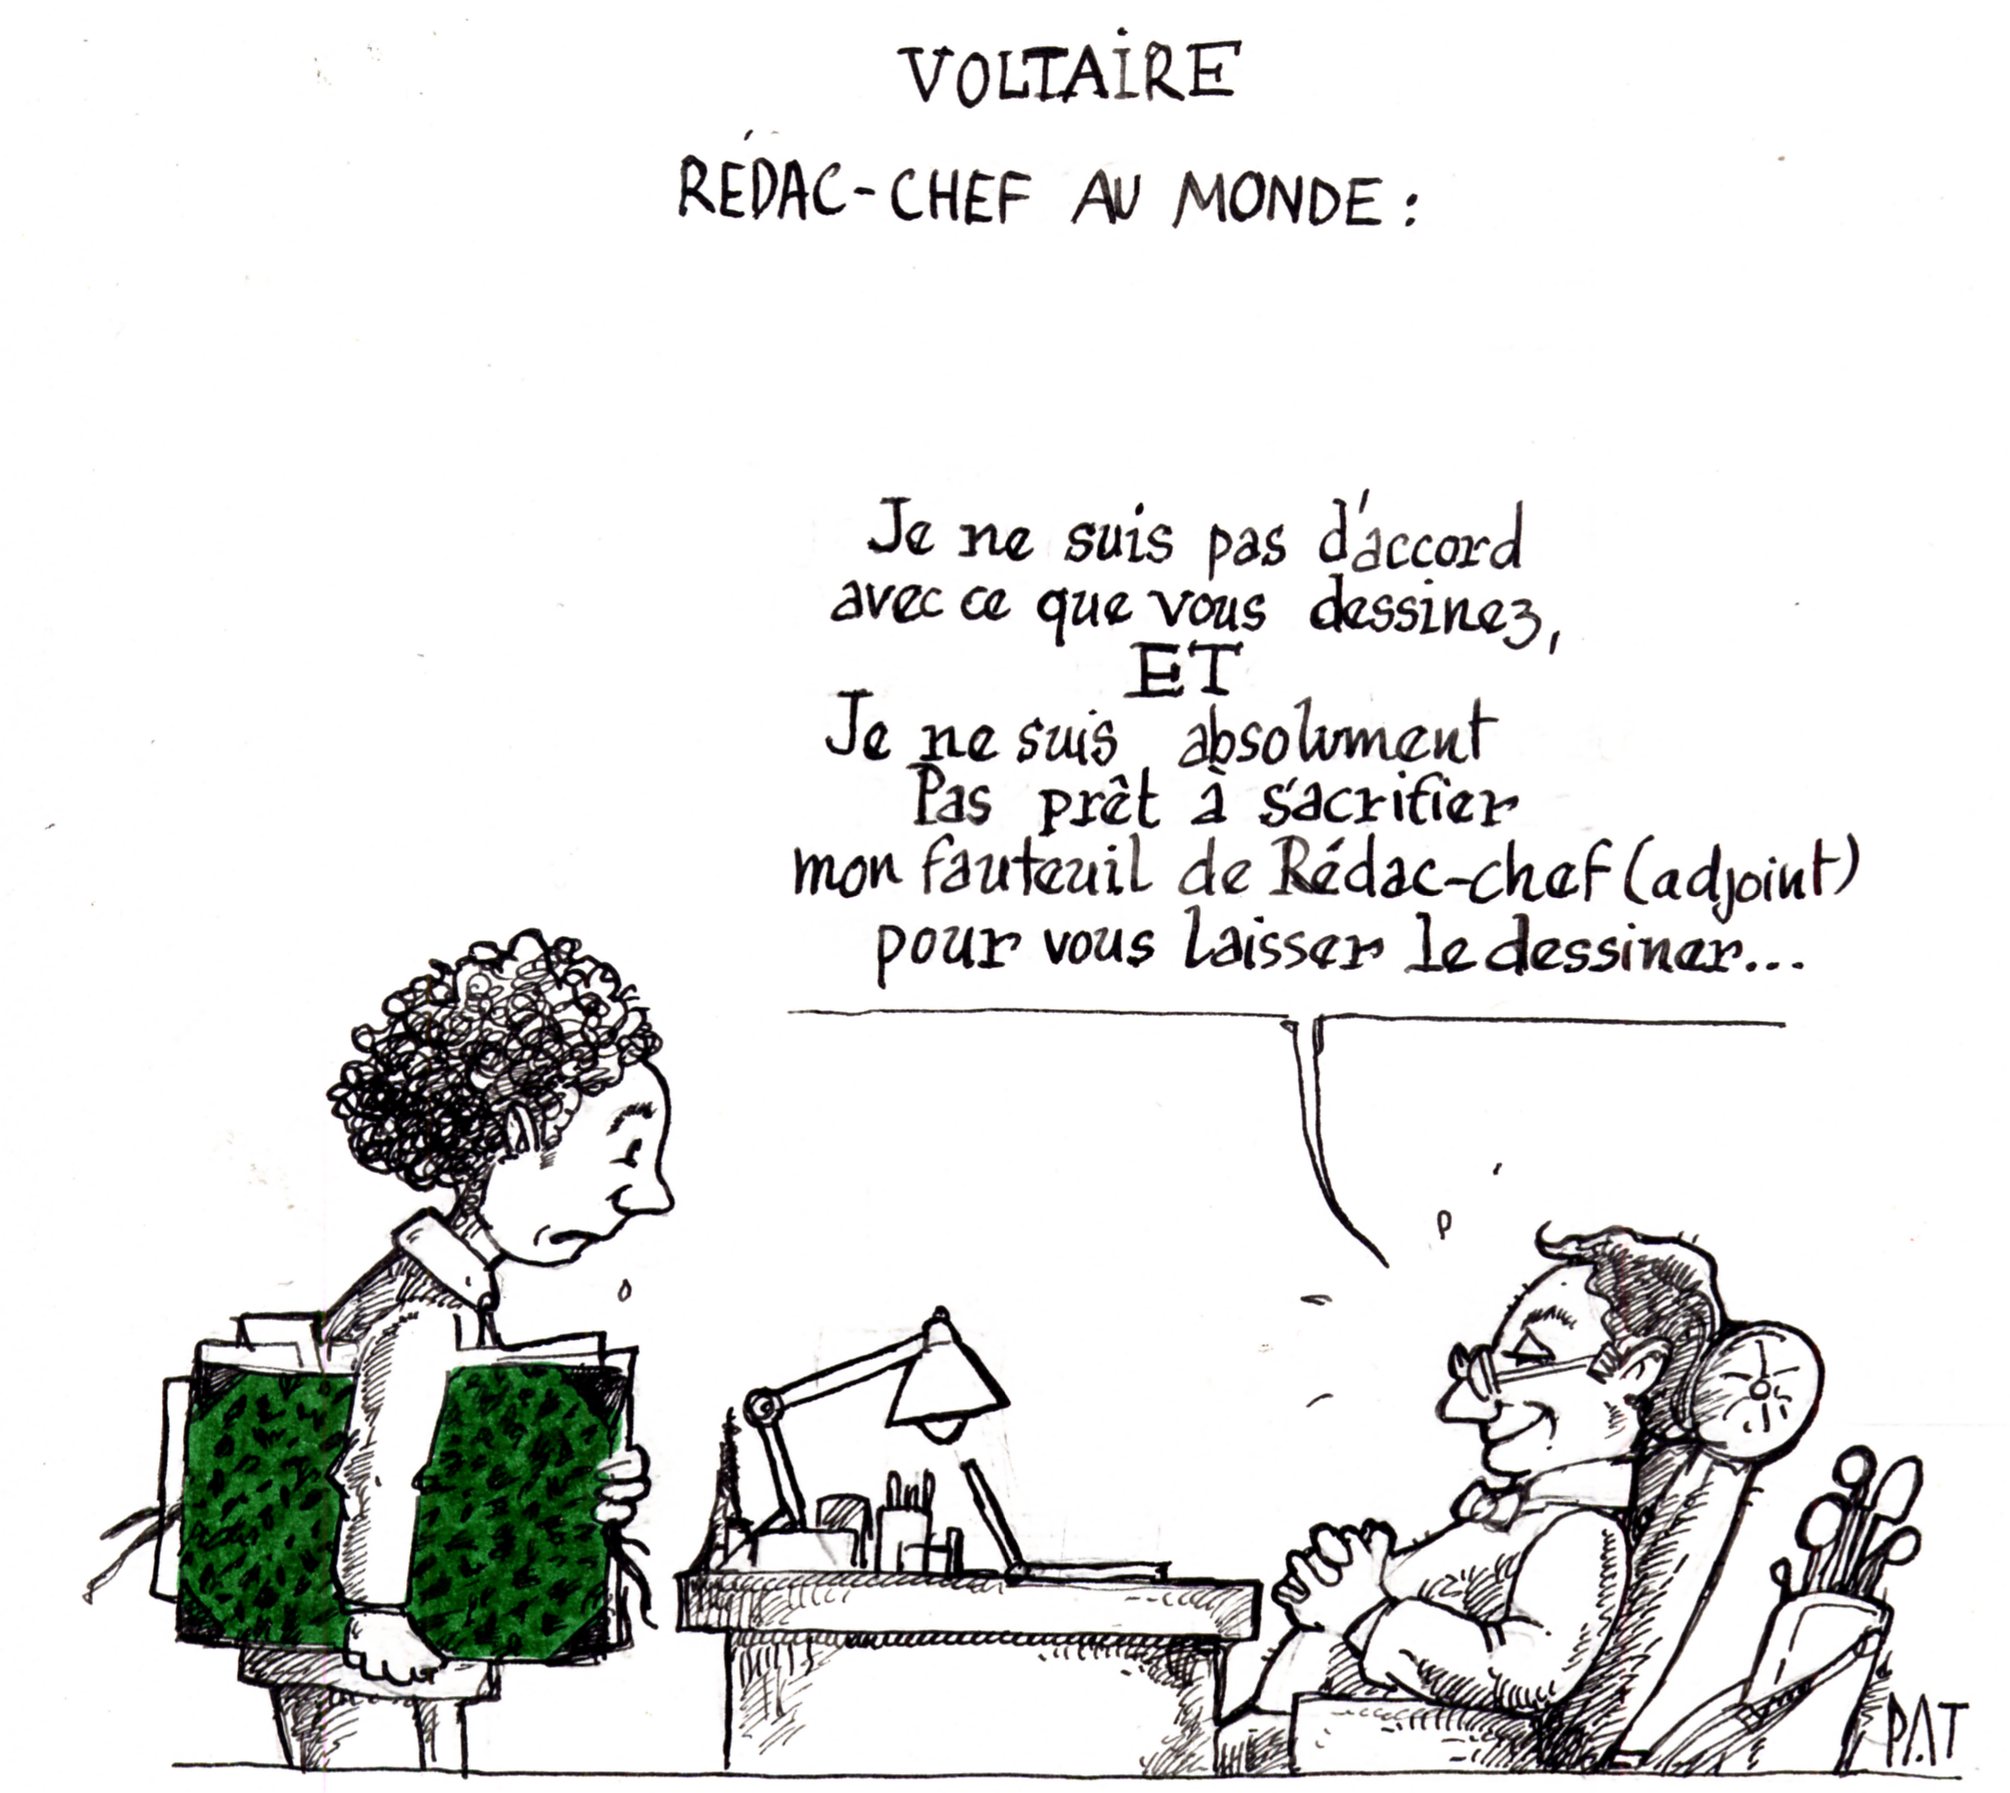 VOLTAIRE
RÉDAC-CHEF AU MONDE :
Je ne suis pas d'accord
avec ce que vous dessinez,
ET
Je ne suis absolument
Pas prêt à sacrifier
mon fauteuil de Rédac-chef (adjoint)
pour vous laisser le dessiner...
PAT